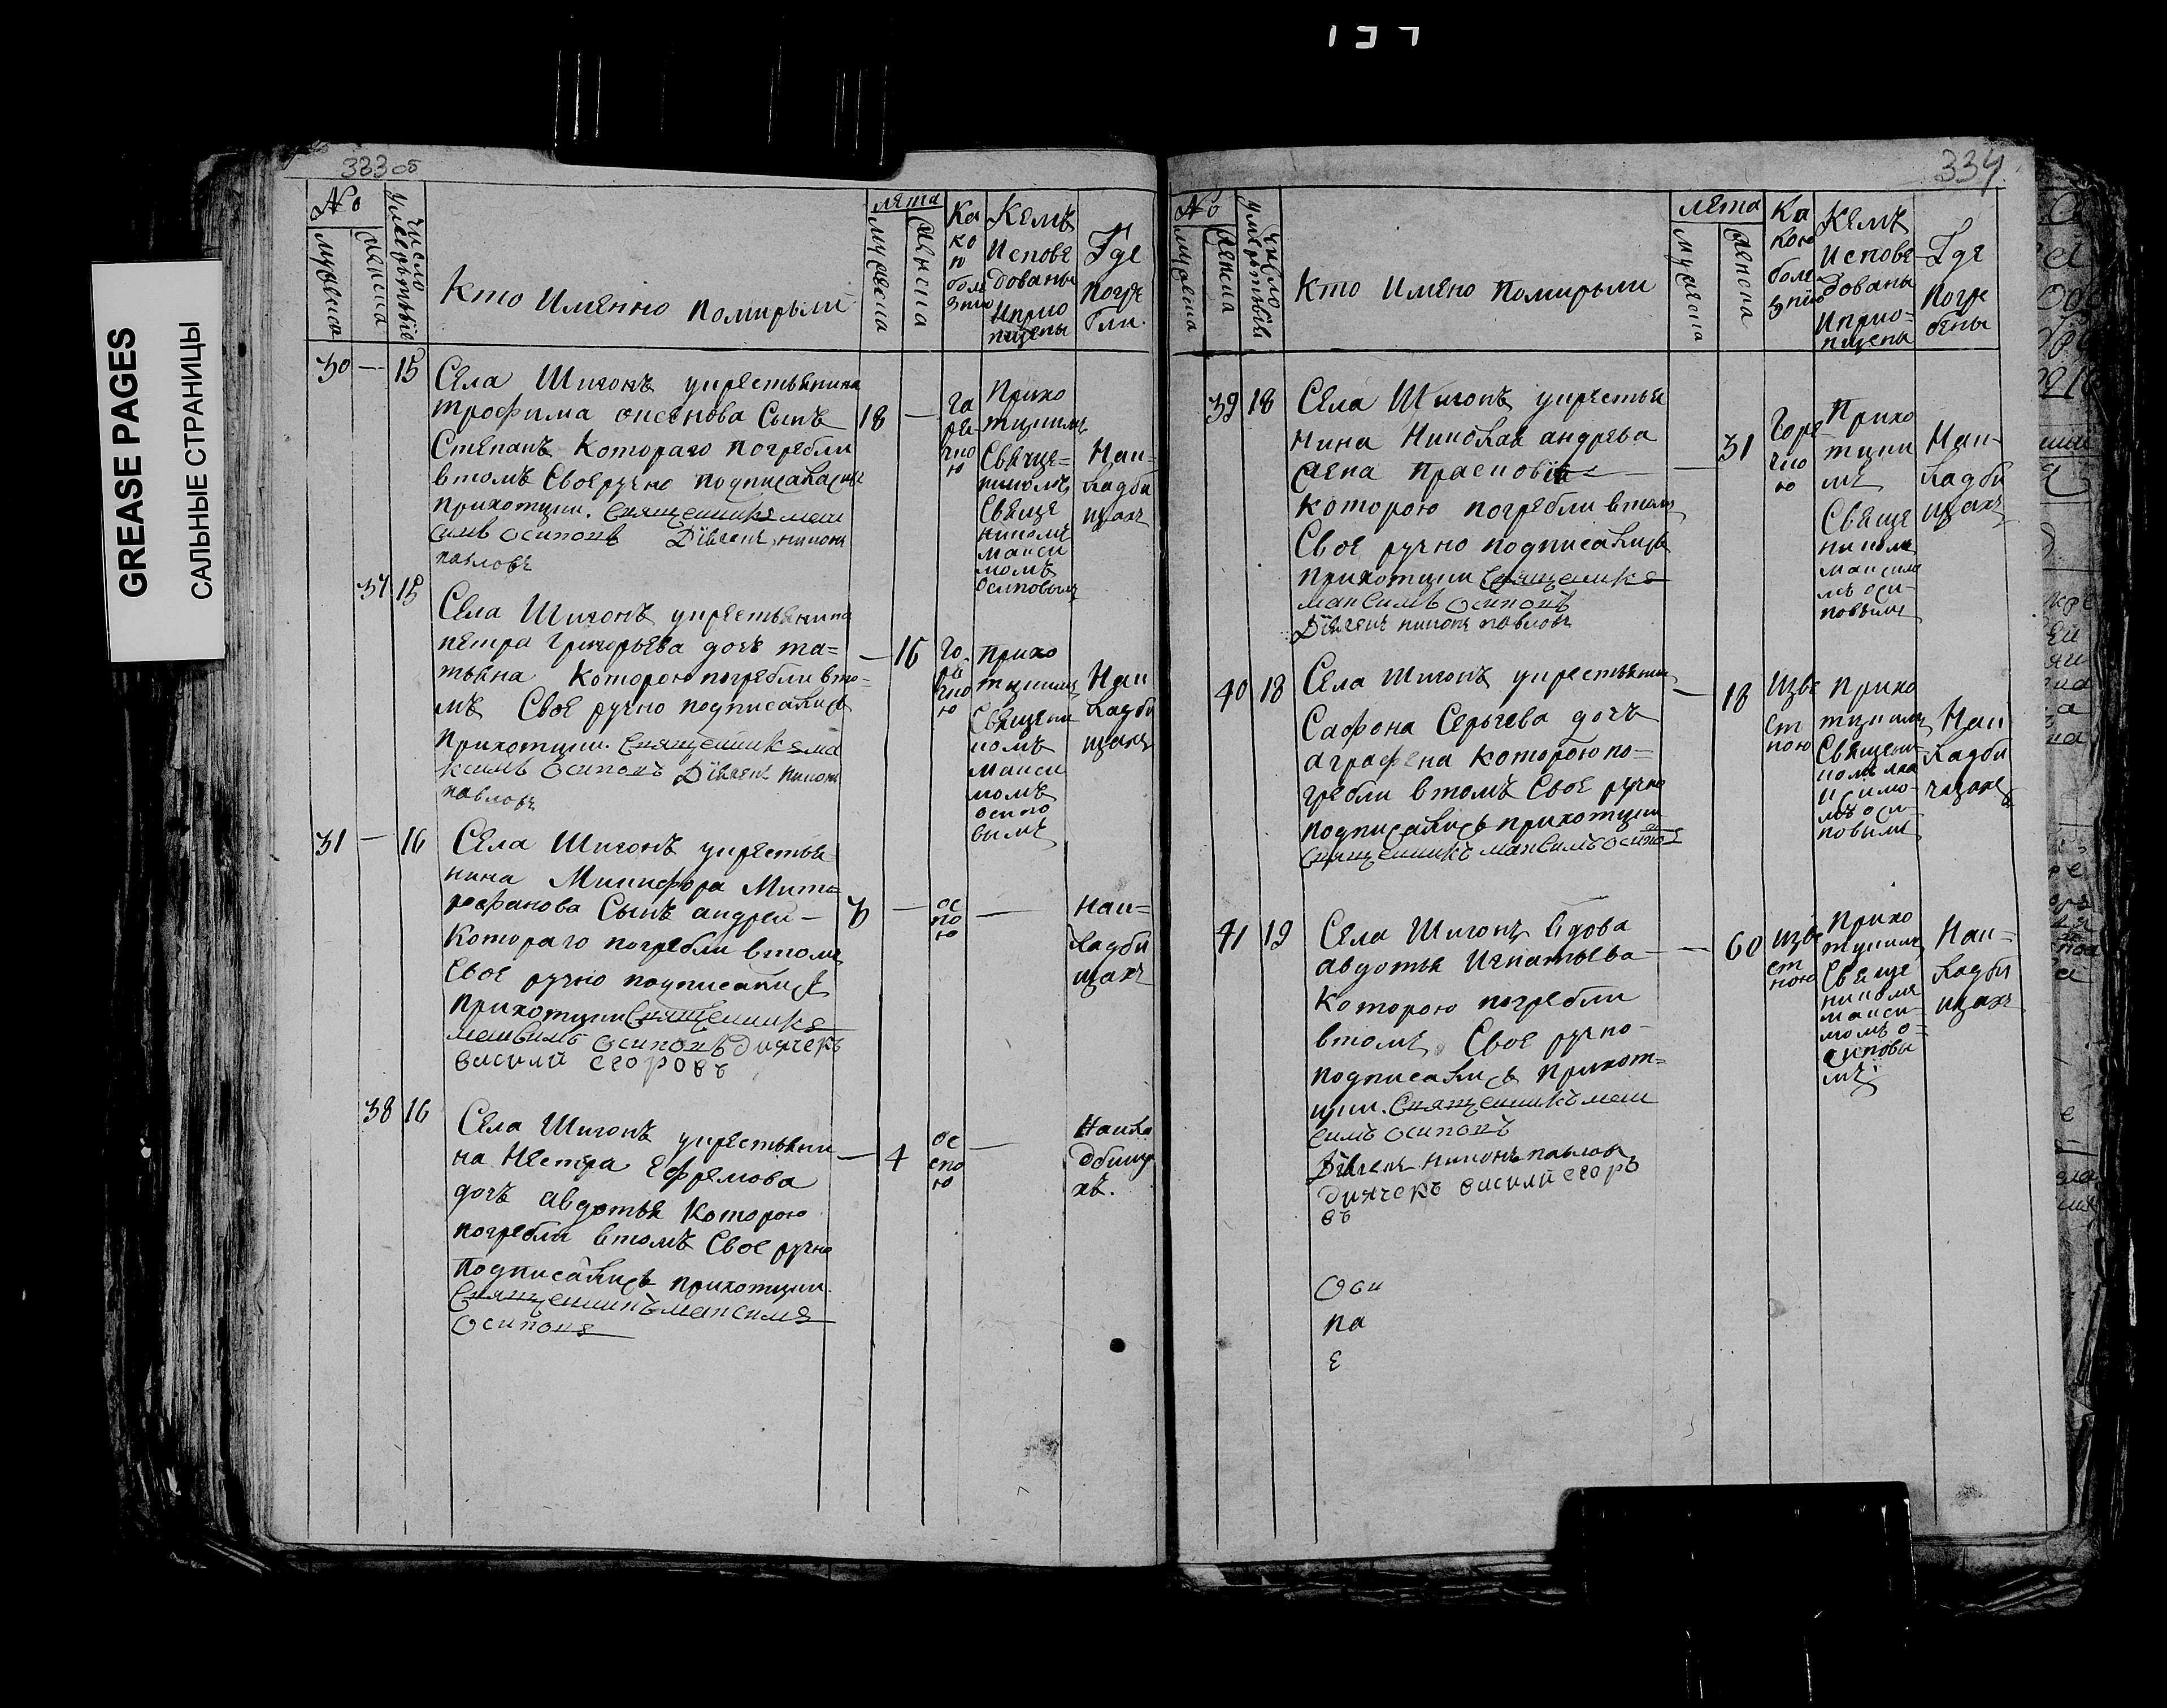 GREASE PAGES
САЛЬНЫЕ СТРАНИЦЫ
333 об
№
мужеска
женска
число умерътвые
Кто Имянно помирыли
лѣта
мужеска
женска
Ка
ко
ю
боле
знию
Кемъ
Испове
дованы
Иприо
пщены
Где
погре
бли.
30 — 15
Села Шигонъ укрестьянина
трофима аксенова Сынъ
Степанъ Котораго погребли
втомъ Своеручно подписалисъ
прихотцки. Священникъ мак
симъ осиповъ Дїяконъ никонъ
павловъ
18 —
го
ре
чко
ю
Прихо
тцкимъ
Свяще=
никомъ
Свяще
никомъ
макси
момъ
осиповымъ
Нак=
ладби
щахъ
37 15
Села Шигонъ укрестьянина
петра Григорьева дочъ та=
тьяна Которою погребли вто=
мъ Свое ручно подписалисъ
прихотцки. Священникъ ма
ксимъ осиповъ Дїяконъ никонъ
павловъ
— 16
го
ре
чко
ю
прихо
тцкимъ
Священи
комъ
макси
момъ
осипо
вымъ
Нак
ладби
щахъ
31 — 16
Села Шигонъ укрестья
нина Микифора Мит
рофанова Сынъ андрей —
Котораго погребли втомъ
Свое ручно подписалисъ
прихотцки Священникъ
максимъ осиповъ диячекъ
василй егоровъ
3 —
ос
по
ю
—
Нак=
ладби
щахъ
38 16
Села Шигонъ укрестьяни
на Нестра Ефремова
дочъ авдотья Которою
погребли втомъ Свое ручно
подписалисъ прихотцки.
Священникъ максимъ
осиповъ
— 4
ос
спо
ю
—
Накла
дбища
хъ.
334
№
мужеска
женска
число умерътвые
Кто Имяно помирыли
лѣта
мужеска
женска
Ка
кою
боле
знїю
Кемъ
Испове
дованы
Иприо=
пщены
Где
погре
бены
39 18
Села Шигонъ укрестья
нина Николая андрева
жена прасковїя
Которою погребли втомъ
Свое ручно подписалисъ
прихотцки Священникъ
максимъ осиповъ
Дїяконъ никонъ павловъ
— 31
Горе
чко
ю
прихо
тцки
мъ
Свяще
никомъ
максимо
мъ оси-
повымъ
Нак-
ладби
щахъ
40 18
Села Шигонъ укрестьянина
Сафона Серьгева дочъ
аграфена Которою по=
гребли втомъ Свое ручно
подписалисъ прихотцки
Священникъ максимъ осипов
— 18
Изве
ст
ною
прихо
тцкимъ
Священи-
комъ ма
ксимо-
мъ оси-
повымъ
Нак
ладби
чщахъ
41 19
Села Шигонъ вдова
авдотья Игнатьева
Которою погребли
втомъ Свое ручно-
подписалисъ прихот=
цки. Священникъ мак
симъ осиповъ
Дїяконъ никонъ павловъ
диячекъ василй егоро
въ
— 60
изве
ст
ною
прихо
тцкимъ
Свяще
никомъ
макси-
момъ о=
сиповы
мъ
Нак=
ладби
щахъ
Оси
па
Е